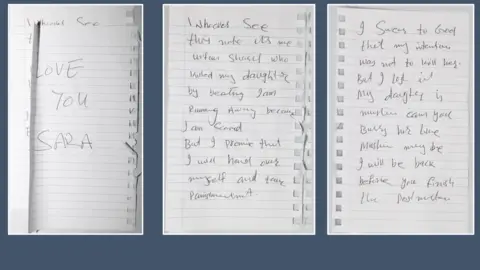 LOVE
YOU
SARA
Whoever see
this note its me
who
killed my daughter
by beating I am
Running Away because
I am scared
But I promise that
I will hand over
myself and take
Punishment
I swear to God
that my intention
was not to kill her.
But I lost it
My daughter is
muslim can you
Bury her like
Muslim may be
I will be back
before you finish
the Postmortem